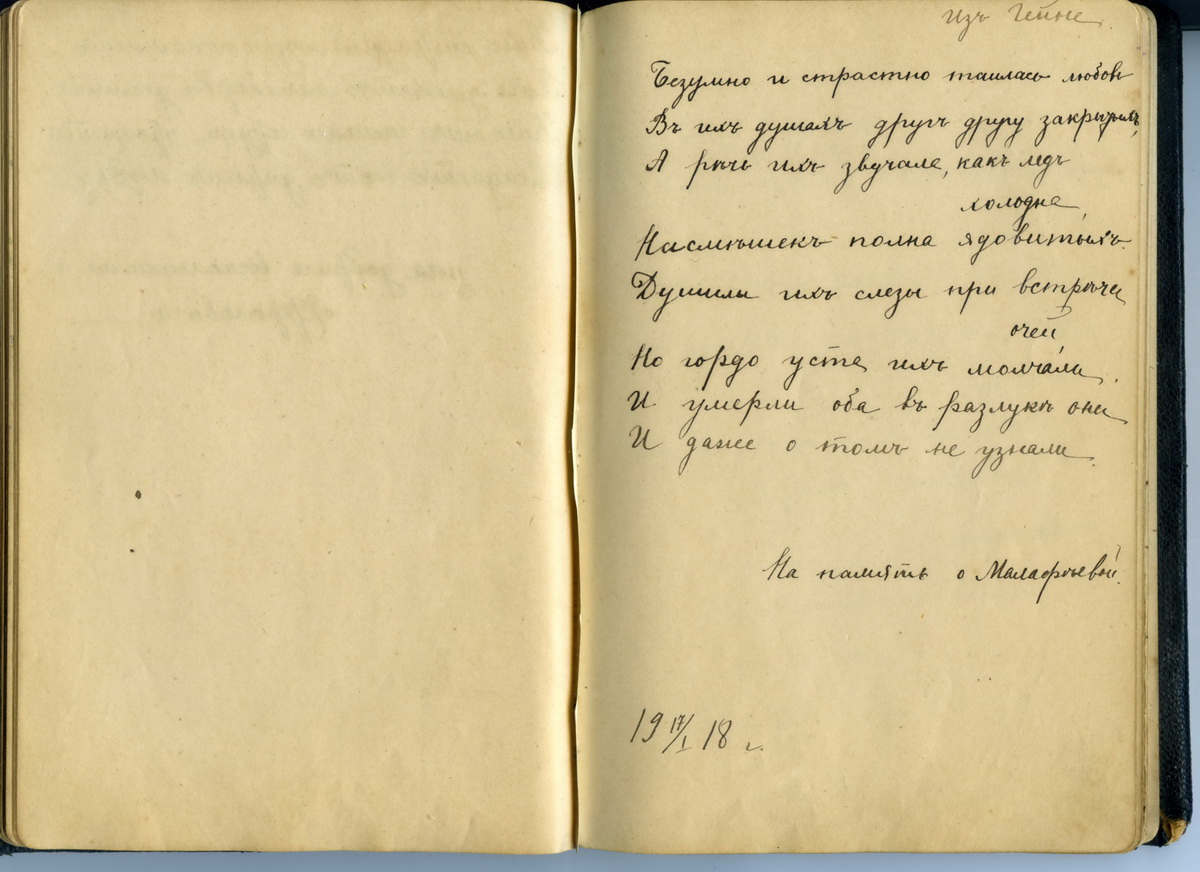 Изъ Гейне.
Безумно и страстно таилась любовь
Въ ихъ душахъ другъ другу закрытыхъ,
А рѣчь ихъ звучала, какъ ледъ
холодна,
Насмѣшекъ полна ядовитыхъ.
Душили ихъ слезы при встрѣчи
очей,
Но гордо уста ихъ молчали.
И умерли оба въ разлукѣ они
И даже о томъ не узнали.
На память о Малафѣевой.
19 17/I 18 г.